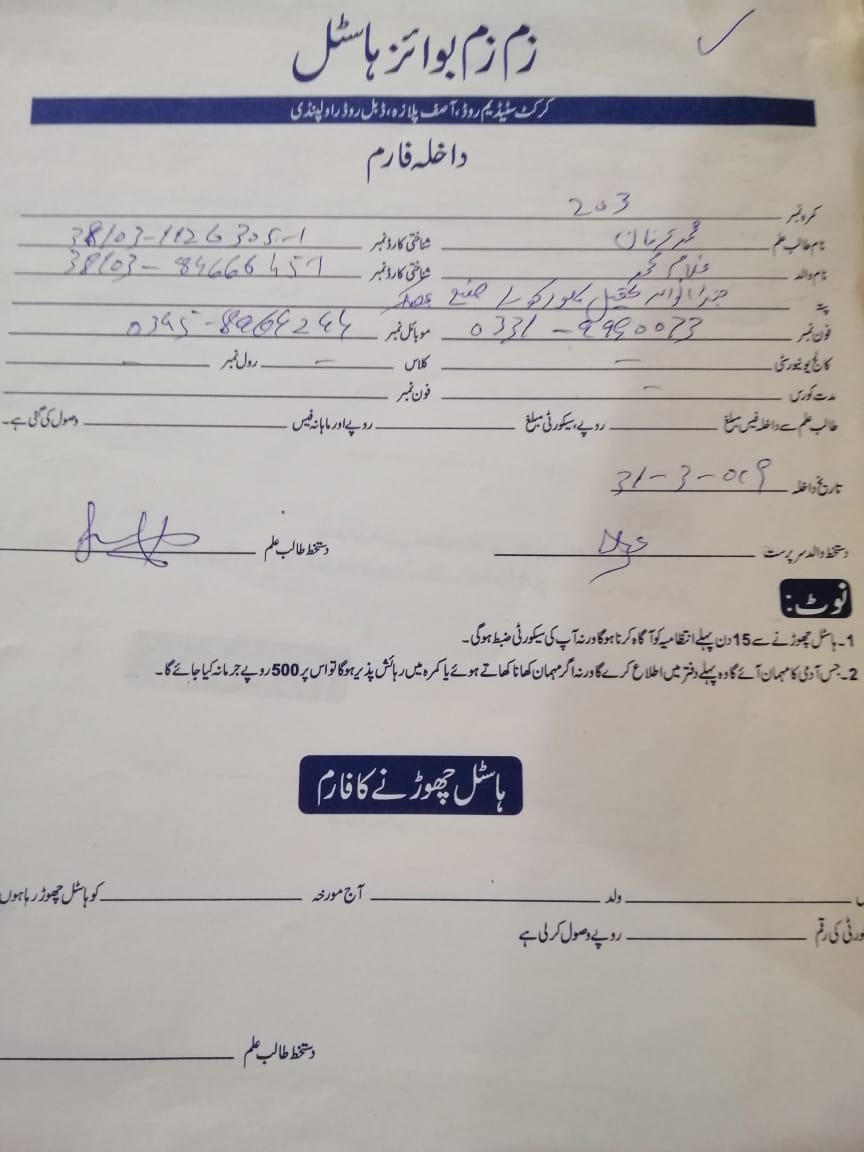 زم زم بوائز ہاسٹل
کرکٹ سٹیڈیم روڈ، آصف پلازہ، ڈبل روڈ راولپنڈی
داخلہ فارم
کمرہ نمبر 203
نام طالب علم محمد عرفان شناختی کارڈ نمبر
نام والد غلام محمد شناختی کارڈ نمبر
پتہ تحصیل ضلع
فون نمبر موبائل نمبر
کالج یونیورسٹی — کلاس — رول نمبر —
مدت کورس — فون نمبر
طالب علم سے داخلہ فیس مبلغ روپے، سیکورٹی مبلغ روپے اور ماہانہ فیس وصول کی گئی ہے۔
تاریخ داخلہ
دستخط والد سرپرست دستخط طالب علم
نوٹ:
1۔ ہاسٹل چھوڑنے سے 15 دن پہلے انتظامیہ کو آگاہ کرنا ہوگا ورنہ آپ کی سیکورٹی ضبط ہوگی۔
2۔ جس آدمی کا مہمان آئے گا وہ پہلے دفتر میں اطلاع کرے گا ورنہ اگر مہمان کھانا کھاتے ہوئے یا کمرہ میں رہائش پذیر ہوگا تو اس پر 500 روپے جرمانہ کیا جائے گا۔
ہاسٹل چھوڑنے کا فارم
ولد آج مورخہ کو ہاسٹل چھوڑ رہا ہوں
کی رقم روپے وصول کر لی ہے
دستخط طالب علم